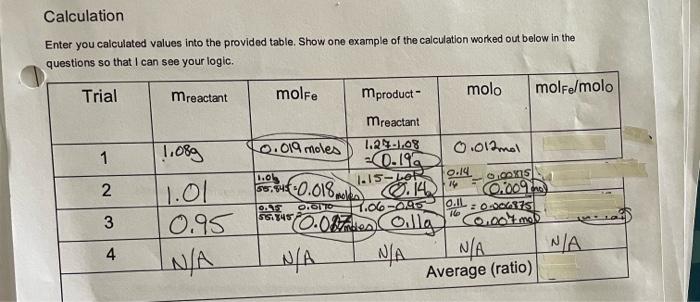 Calculation
Enter you calculated values into the provided table. Show one example of the calculation worked out below in the
questions so that I can see your logic.
Trial mreactant molFe mproduct- mreactant molo molFe/molo
1 1.08g 0.019 moles 1.27-1.08 =0.19g 0.012mol
2 1.01 1.01/55.845=0.018 moles 1.15-1.01 0.14 0.14/16 = 0.00875 0.009 mol
3 0.95 0.95/55.845 0.0170 moles 1.06-0.95 0.11g 0.11/16 = 0.006875 0.007 mol
4 N/A N/A N/A N/A N/A
Average (ratio)